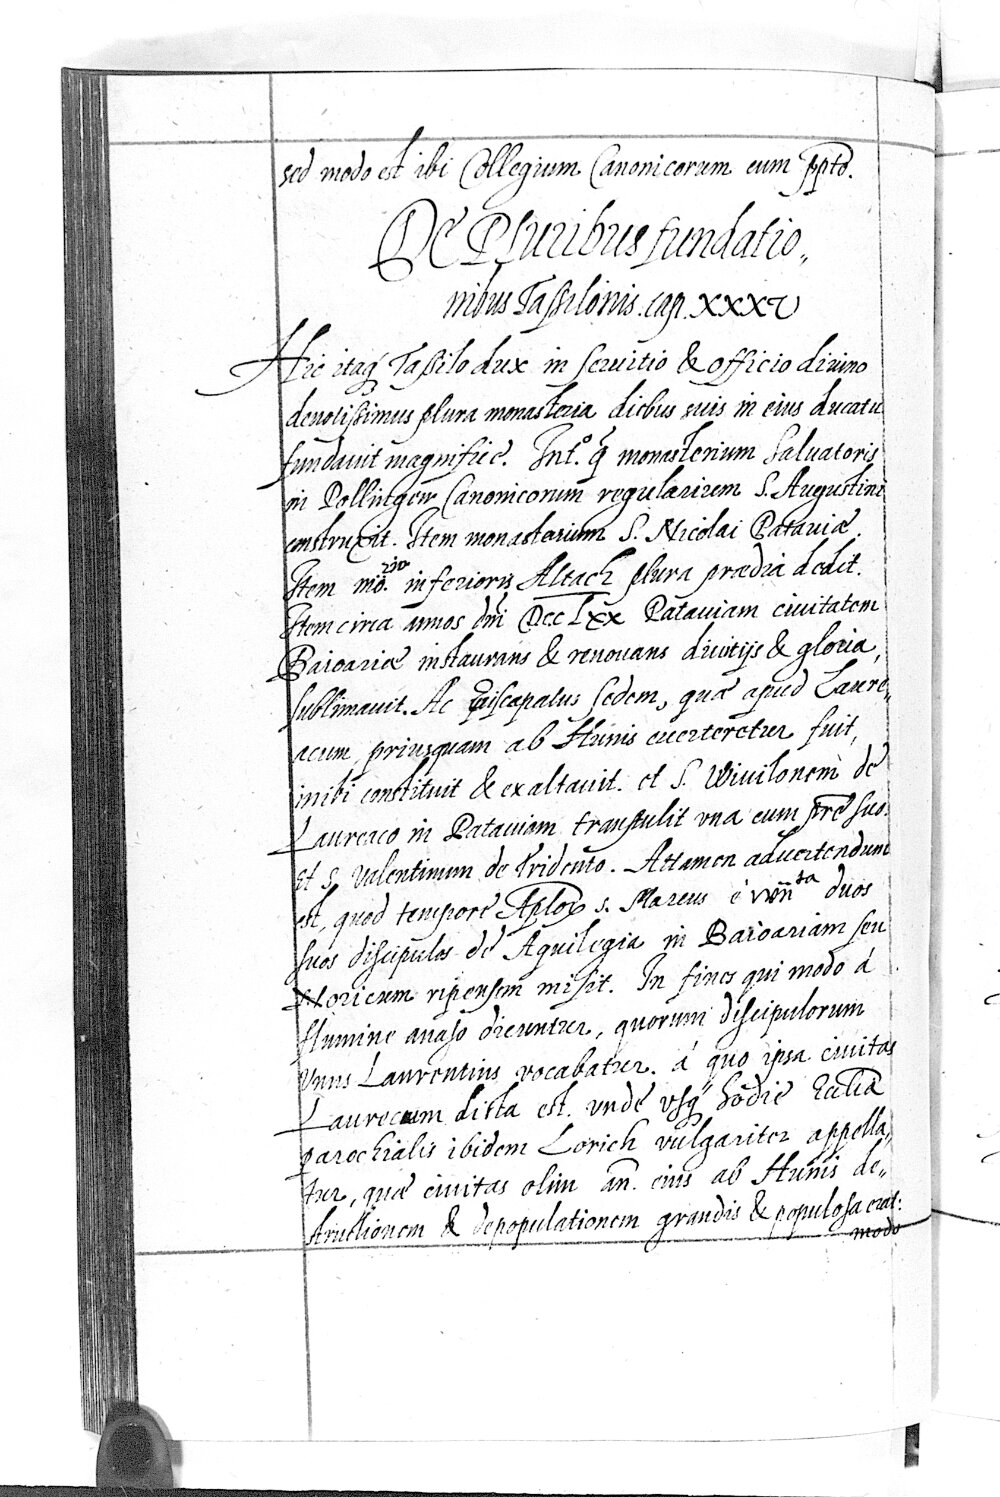 sed modo est ibi Collegium Canonicorum cum ppto.
De Pluribus fundatio„
nibus Tassilonis. cap. XXXV
Hic itaq Tassilo dux in servitio & officio divino
devotissimus plura monasteria diebus suis in eius ducatu
fundavit magnifice. Int.º q monasterium Salvatoris
in Pollingen Canonicorum regularium S. Augustini
construxit. Item monasterium S. Nicolai Pataviæ.
Item mo.rio inferioris Altach plura prædia dedit.
Item circa annos dni DCCLXX Pataviam civitatem
Baioariæ instaurans & renovans divitijs & gloria,
sublimavit. Ac episcopatus sedem, quæ apud Laure„
acum, priusquam ab Hunis everteretur fuit,
inibi constituit & exaltavit. et S. Wivilonem de
Laureaco in Pataviam transtulit vna cum pre suo.
et S. Valentinum de Tridento. Attamen advertendum
est, quod tempore Aplor s. Marcus duos
suos discipulos de Aquilegia in Baioariam seu
Noricum ripensem misit. In fines qui modo á
flumine anaso dicuntur, quorum discipulorum
vnus Laurentius vocabatur. á quo ipsa civitas
Laurecum dicta est. vnde vsq hodie Eccliã
parochialis ibidem Lorich vulgariter appella„
tur, quæ civitas olim an. eius ab Hunis de„
structionem & depopulationem grandis & populosa erat:
modo